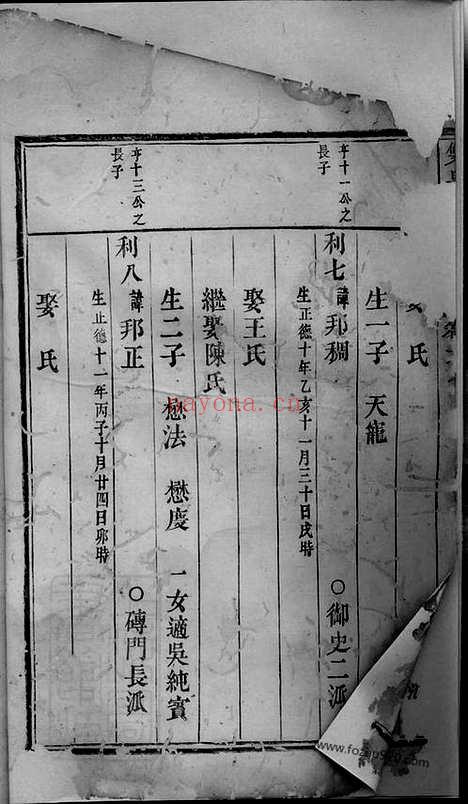 氏
生一子 天龍
亨十一公之
長子
利七 諱 邦稠 ○御史二派
生正德十年乙亥十一月三十日戌時
娶王氏
繼娶陳氏
生二子 懋法 懋度 一女適吳純實
亨十三公之
長子
利八 諱 邦正 ○磚門長派
生正德十一年丙子十月廿四日卯時
娶氏
nayona.cn